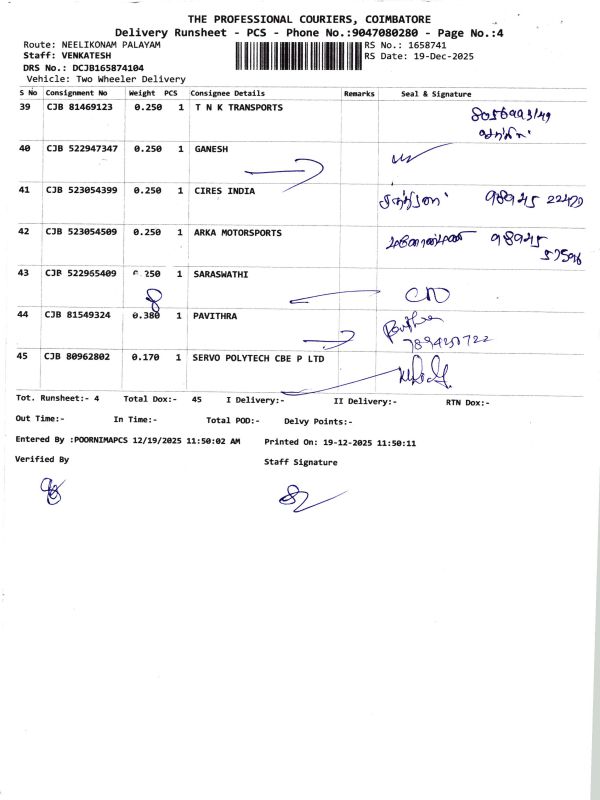 THE PROFESSIONAL COURIERS, COIMBATORE
Delivery Runsheet - PCS - Phone No.:9047080280 - Page No.:4
Route: NEELIKONAM PALAYAM
RS No.: 1658741
Staff: VENKATESH
RS Date: 19-Dec-2025
DRS No.: DCJB165874104
Vehicle: Two Wheeler Delivery
S No Consignment No Weight PCS Consignee Details Remarks Seal & Signature
39 CJB 81469123 0.250 1 T N K TRANSPORTS
40 CJB 522947347 0.250 1 GANESH
41 CJB 523054399 0.250 1 CIRES INDIA
42 CJB 523054509 0.250 1 ARKA MOTORSPORTS
43 CJB 522965409 0.250 1 SARASWATHI
44 CJB 81549324 0.380 1 PAVITHRA
7894251722
45 CJB 80962802 0.170 1 SERVO POLYTECH CBE P LTD
Tot. Runsheet:- 4 Total Dox:- 45 I Delivery:- II Delivery:- RTN Dox:-
Out Time:- In Time:- Total POD:- Delvy Points:-
Entered By :POORNIMAPCS 12/19/2025 11:50:02 AM Printed On: 19-12-2025 11:50:11
Verified By Staff Signature